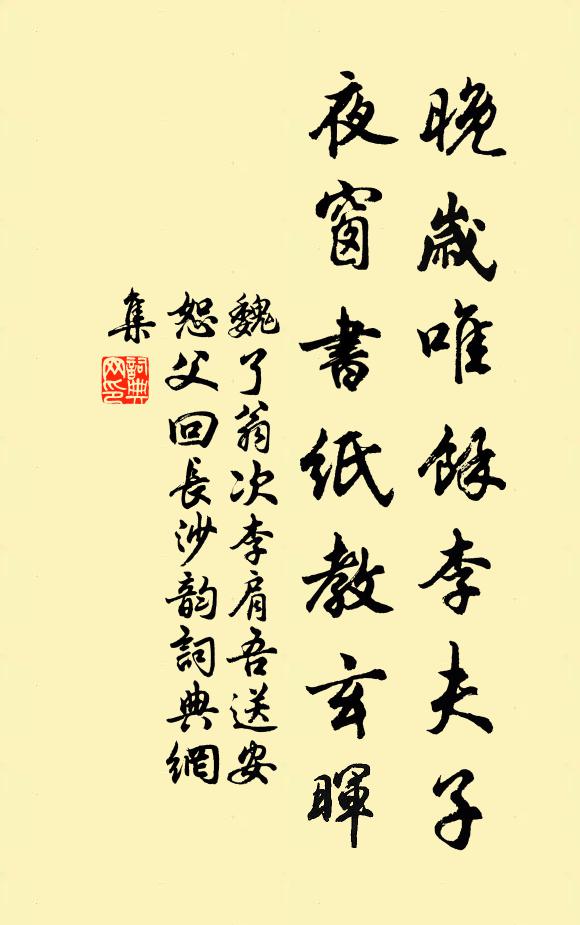 晚歲唯餘李夫子
夜窗書紙教玄暉
魏了翁次李肩吾送安
恕父回長沙韵詞典網
集
詞典網印